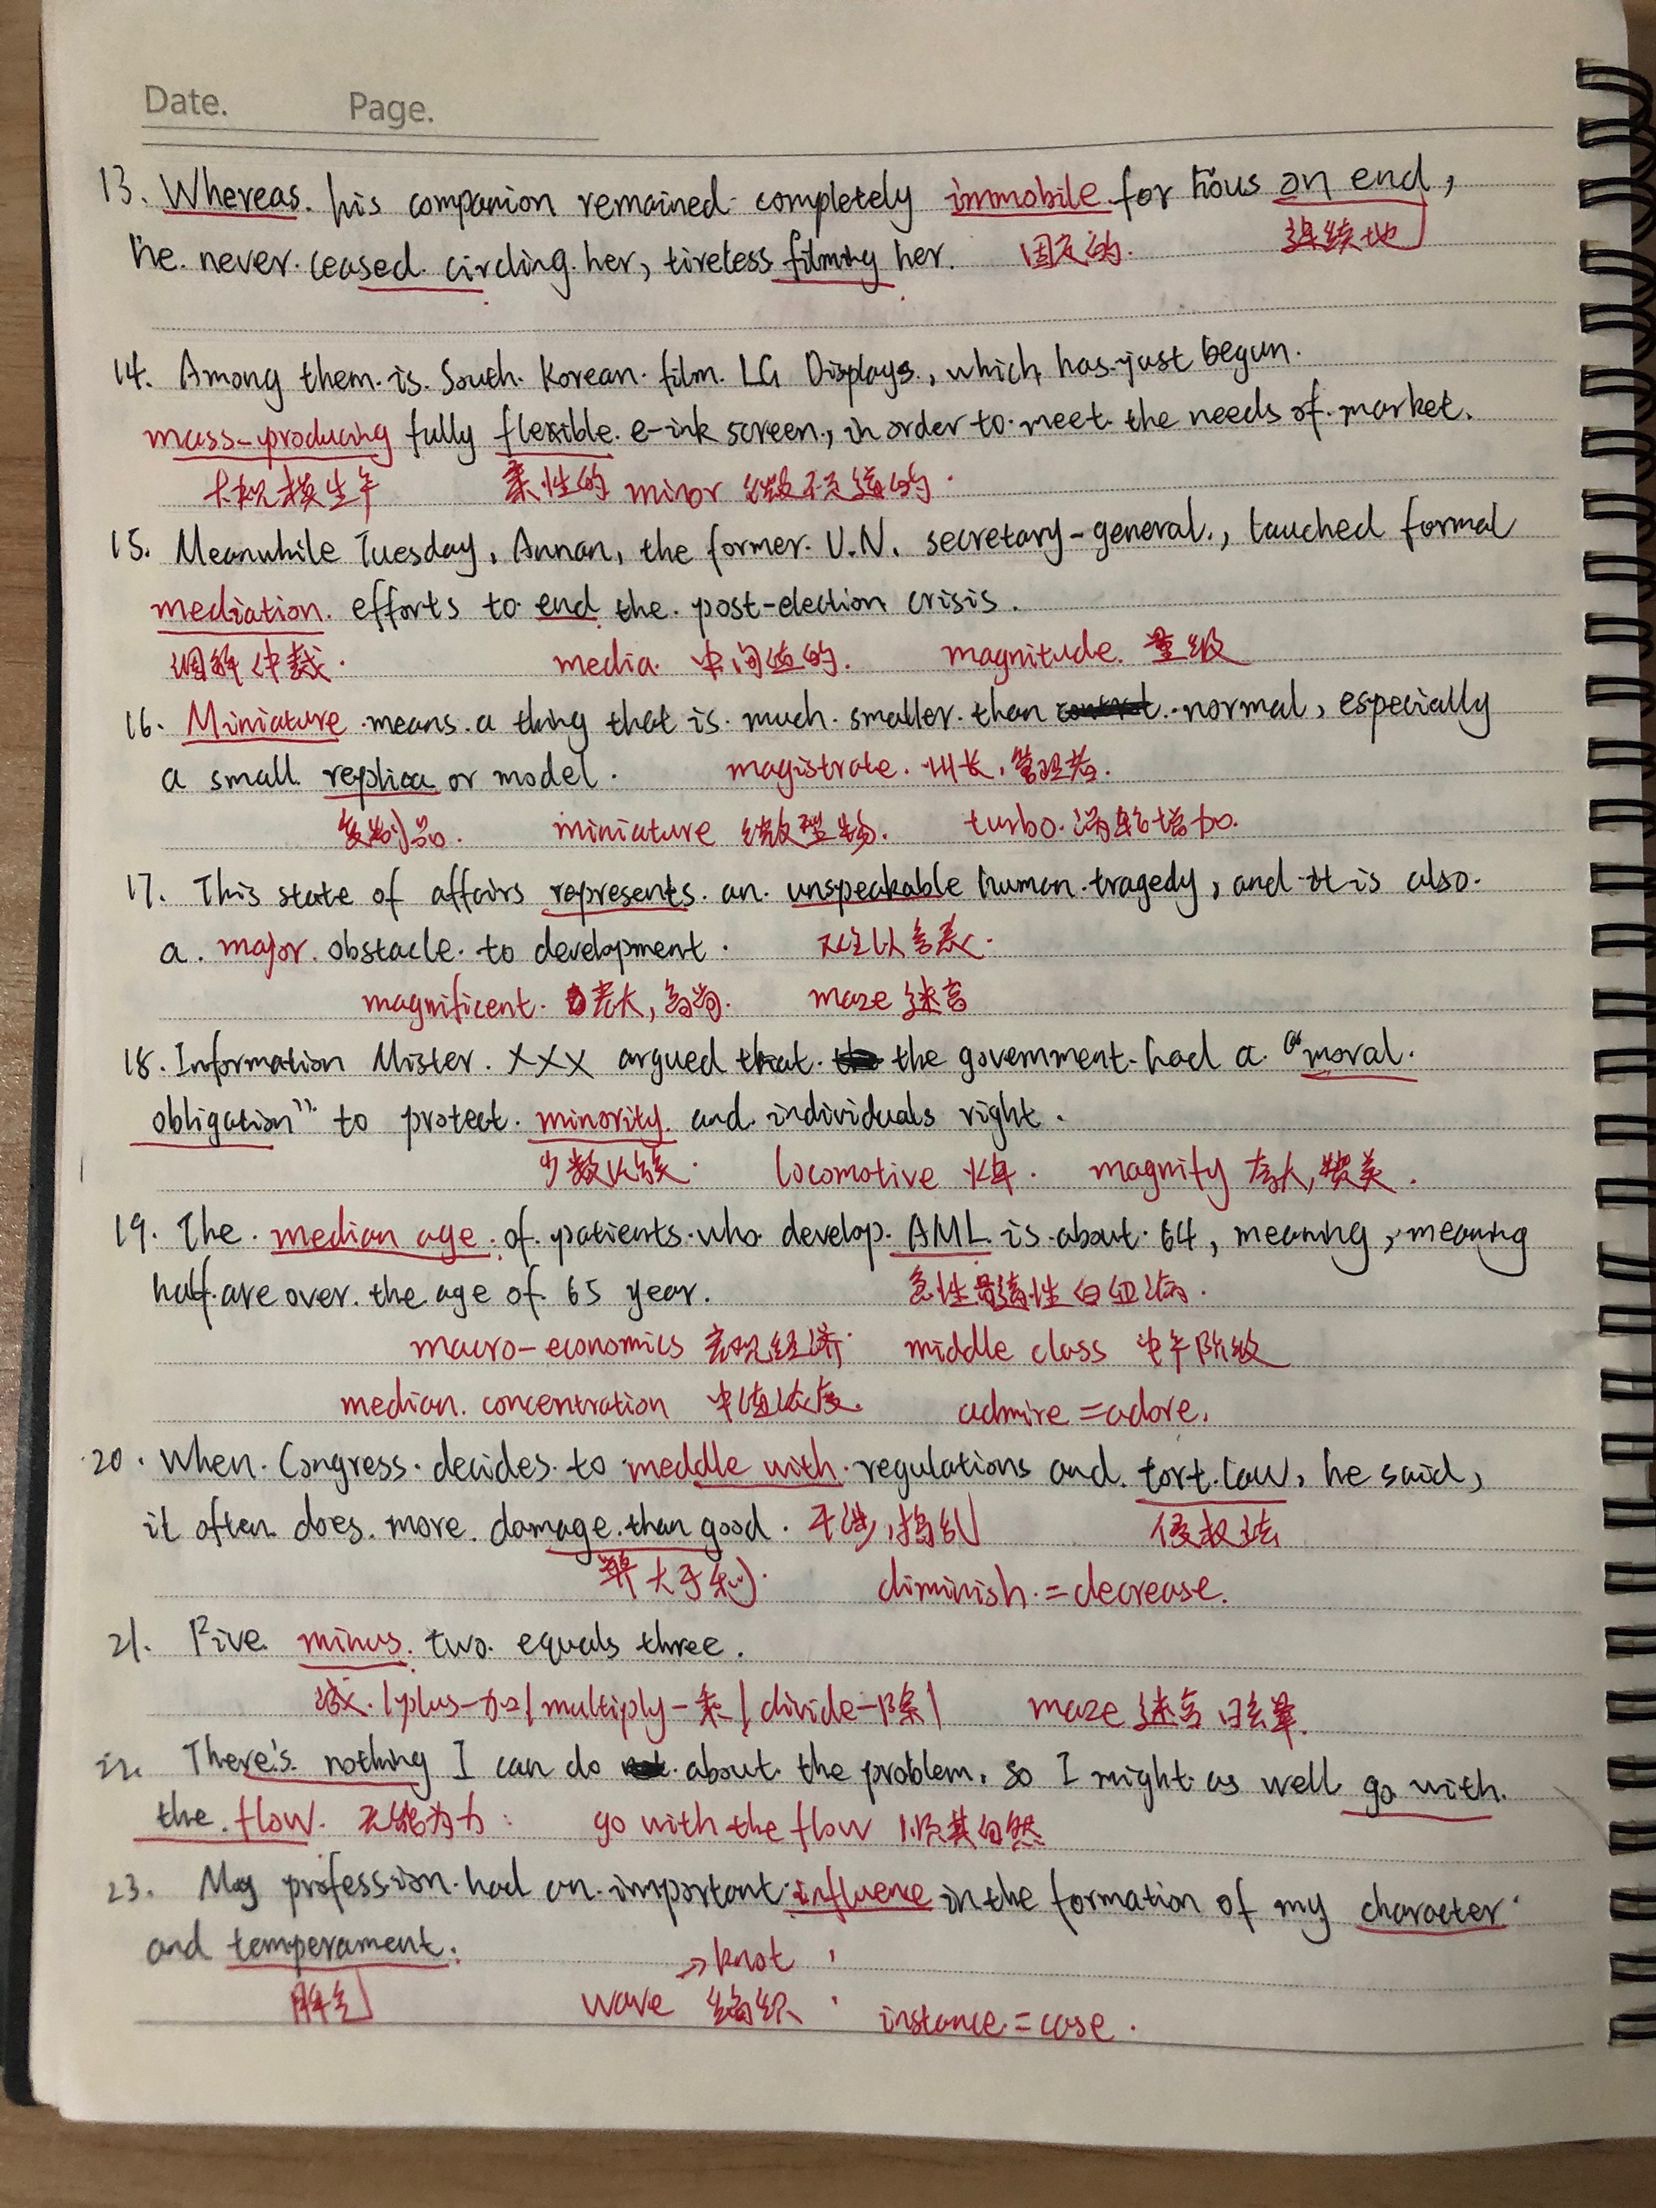 Date. Page.
13. Whereas his companion remained completely immobile for hous on end,
he never ceased circling her, tireless filming her. 固定的. 连续地
14. Among them is South Korean film LG Displays, which has just begun
mass-producing fully flexible e-ink screen, in order to meet the needs of market.
大规模生产 柔性的 minor 微不足道的.
15. Meanwhile Tuesday, Annan, the former U.N. secretary-general, lauched formal
mediation efforts to end the post-election crisis.
调解仲裁. media 中间值的. magnitude 量级
16. Miniature means a thing that is much smaller than normal, especially
a small replica or model. magistrate. 州长,管理者.
复制品. miniature 微型物. turbo. 涡轮增加.
17. This state of affairs represents an unspeakable human tragedy, and it is also
a major obstacle to development. 难以言表.
magnificent. 宏大, maze 迷宫
18. Information Mister. XXX argued that the government had a "moral
obligation" to protect minority and individuals right.
少数民族. locomotive 火车. magnify 夸大,赞美.
19. The median age of patients who develop AML is about 64, meaning, meaning
half are over the age of 65 year. 急性骨髓性白血病.
macro-economics 宏观经济 middle class 中产阶级
median concentration 中值浓度. admire=adore.
20. When Congress decides to meddle with regulations and tort law, he said,
it often does more damage than good. 干涉,捣乱 侵权法
弊大于利. diminish=decrease.
21. Five minus two equals three.
减. |plus-加|multiply-乘|divide-除| maze 迷宫 眩晕.
22. There's nothing I can do about the problem, so I might as well go with
the flow. 无能为力: go with the flow 顺其自然
23. My profession had an important influence in the formation of my character
and temperament. →knot
脾气 wave 编织 instance=case.